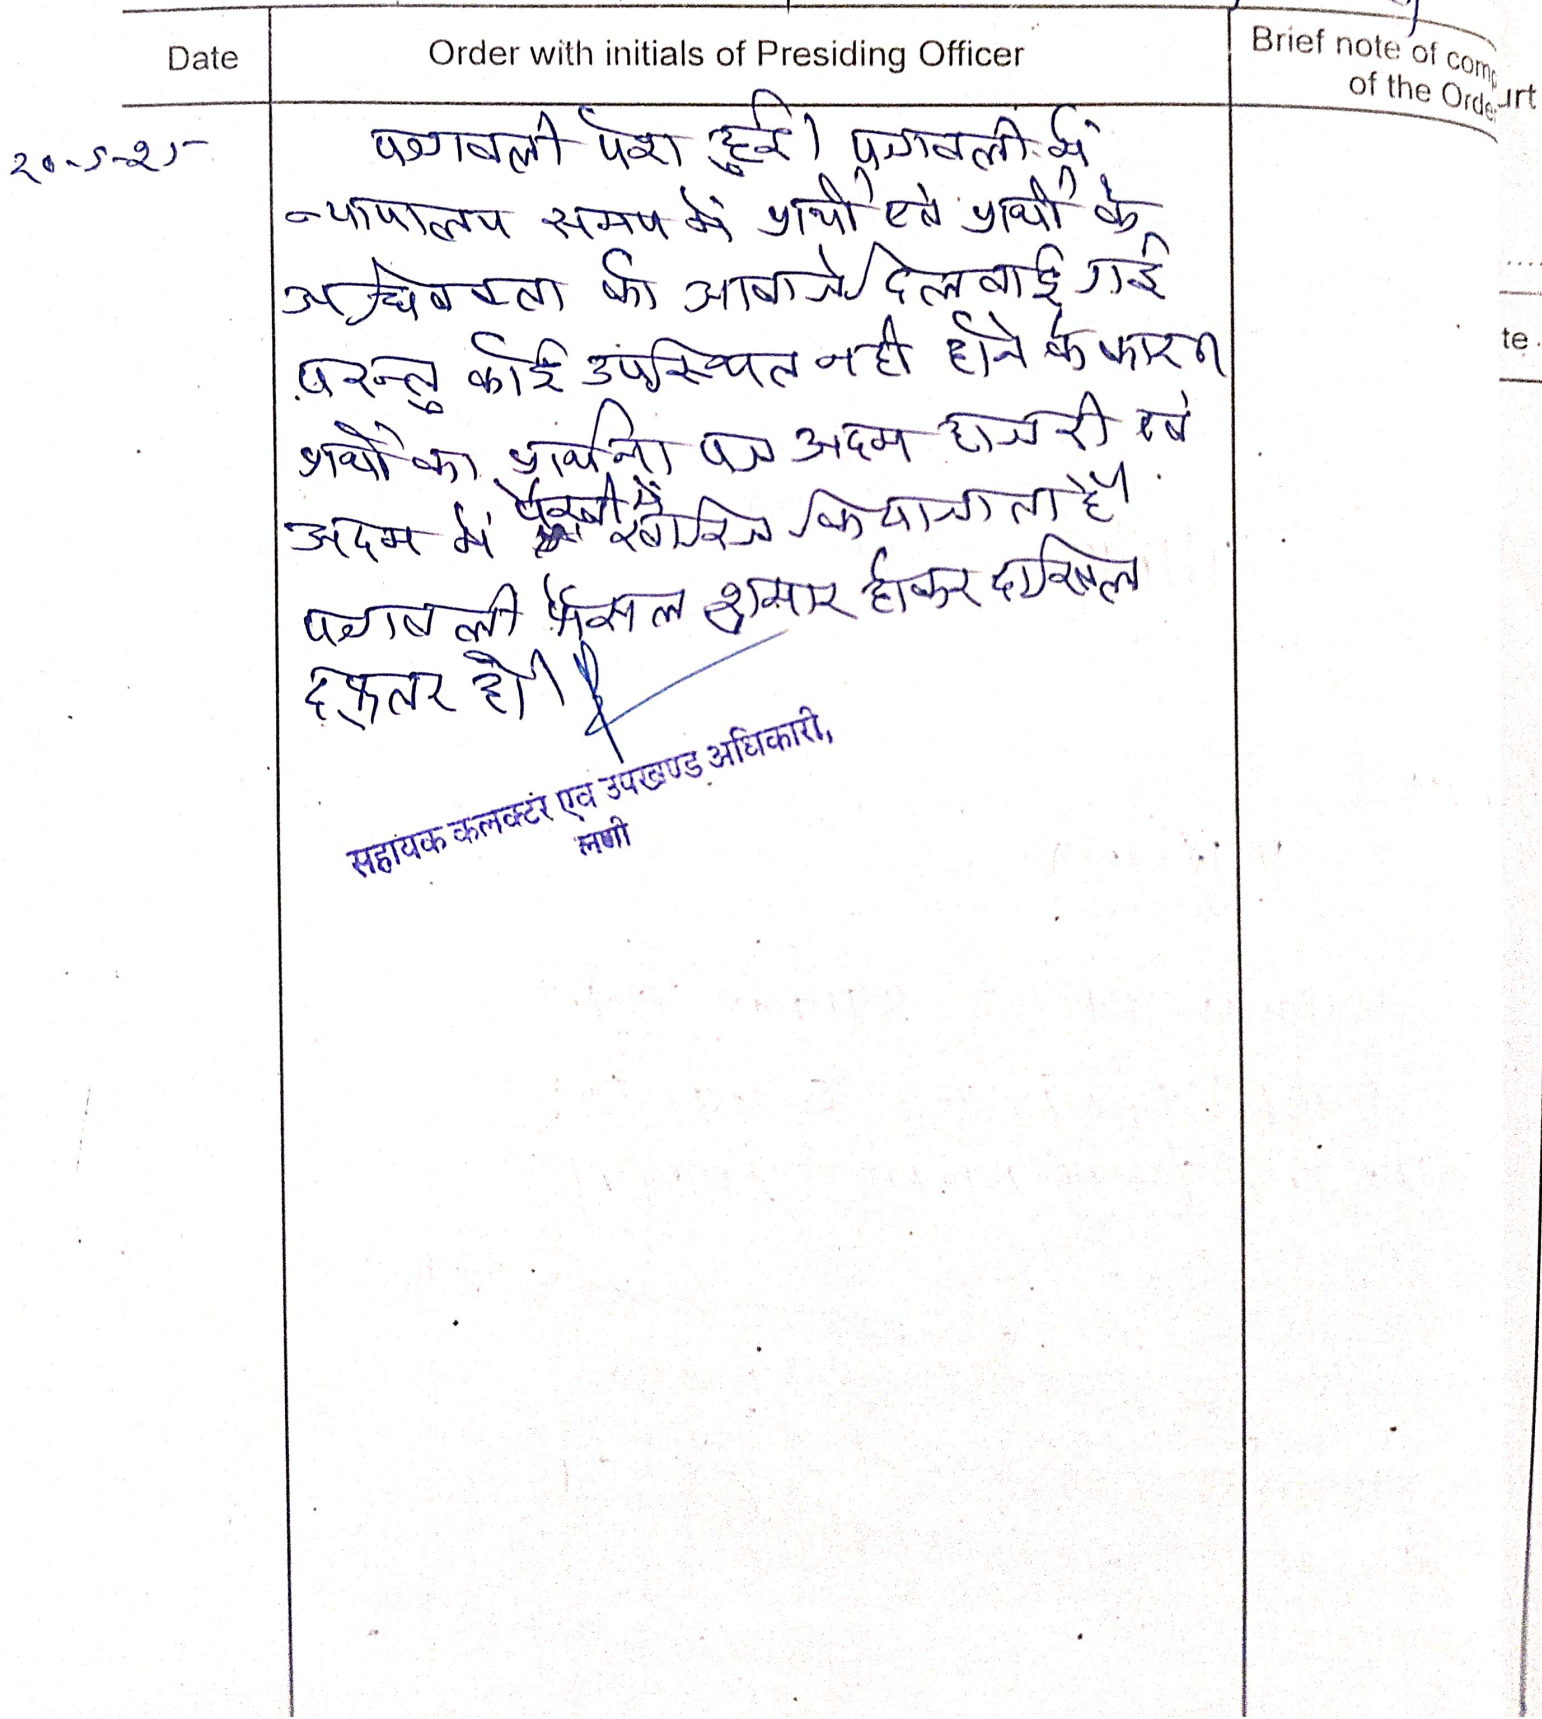 Date
Order with initials of Presiding Officer
Brief note of comp
of the Orde
urt
te
20-5-25
पत्रावली पेश हुई। पत्रावली में
न्यायालय समय में प्रार्थी एवं प्रार्थी के
अधिवक्ता की आवाजे दिलवाई गई
परन्तु कोई उपस्थित नही होने के कारण
प्रार्थी का प्रार्थना पत्र अदम हाजरी एवं
अदम में पैरवी में खारिज किया जाता है।
पत्रावली फैसल शुमार होकर दाखिल
दफ्तर हो।
सहायक कलक्टर एवं उपखण्ड अधिकारी,
लूणी